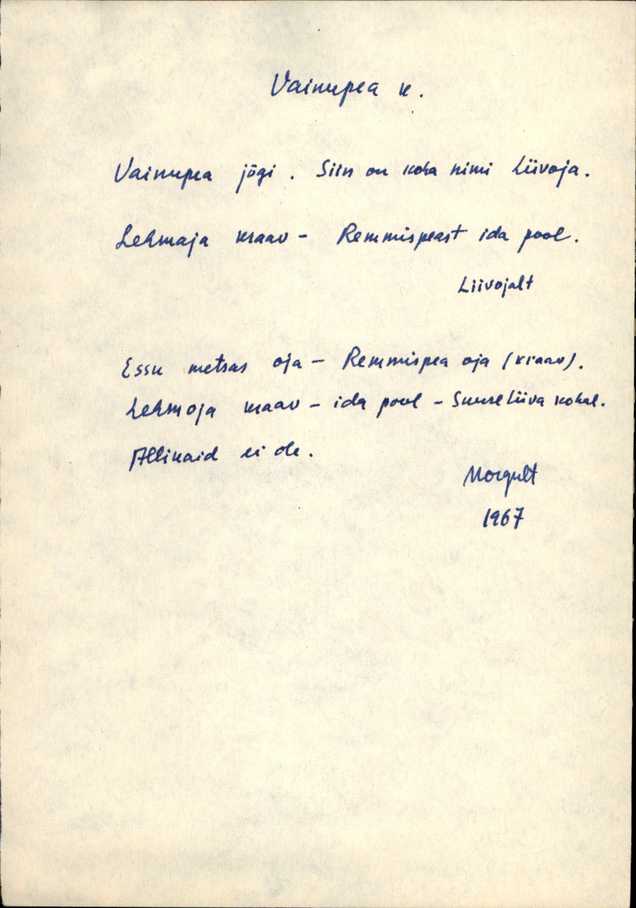 Vainupea k.
Vainupea jõgi. Siin on koha nimi Liivoja.
Lehmaja kraav - Remmispeast ida pool.
Liivojalt
Essu metsas oja - Remmispea oja (kraav).
Lehmoja kraav - ida pool - Suure Liiva kohal.
Allikaid ei ole.
Norgult
1967